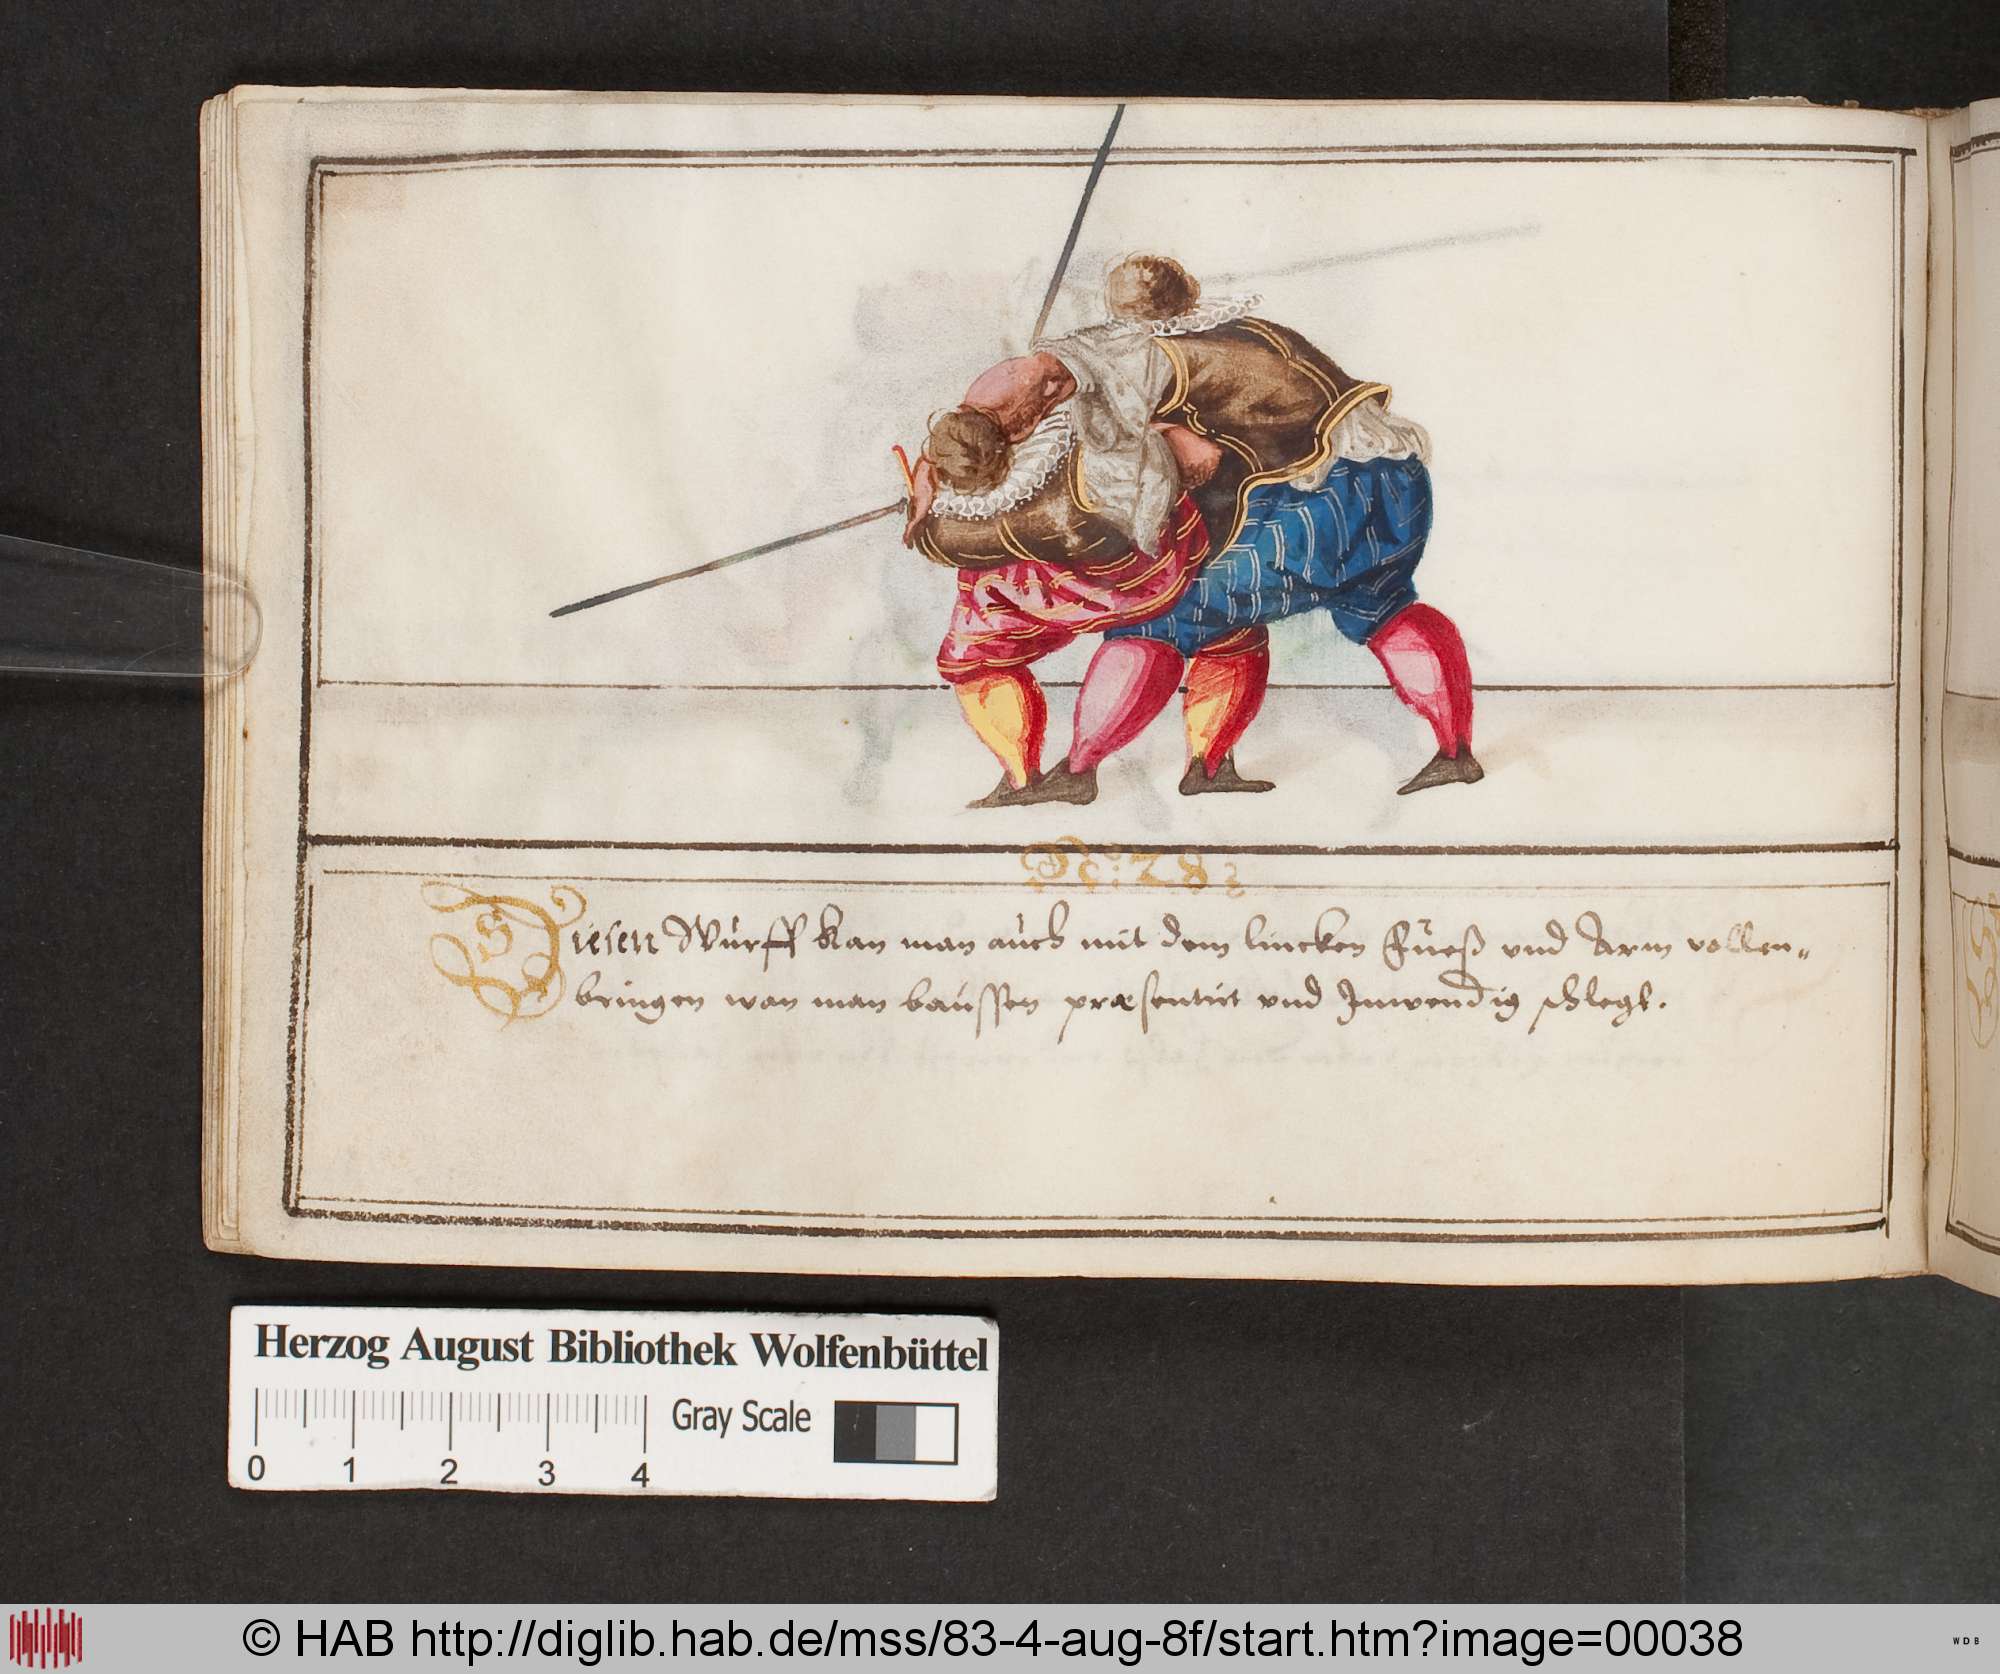 No: 28
Diesen Wurff kan man auch mit dem lincken Fueß und Arm vollen-
bringen wan man baussen præsentirt und Inwendig schlegt.
Herzog August Bibliothek Wolfenbüttel
Gray Scale
0 1 2 3 4
© HAB http://diglib.hab.de/mss/83-4-aug-8f/start.htm?image=00038
WDB